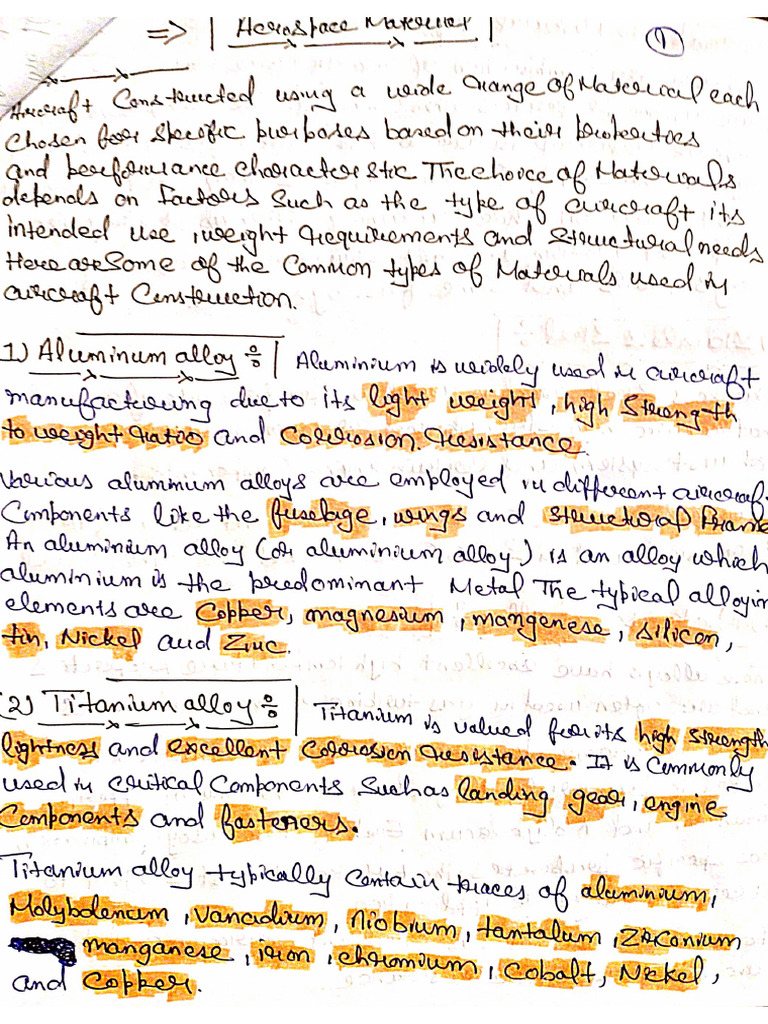 => | Aerospace Material | (1)
Aircraft Constructed using a wide range of Material each
chosen for specific purposes based on their properties
and performance characteristic The choice of Materials
depends on factors such as the type of aircraft its
intended use, weight requirements and structural needs
Here are Some of the Common types of Materials used in
aircraft Construction.
1) Aluminum alloy % | Aluminium is widely used in aircraft
manufacturing due to its light weight, high strength
to weight ratio and Corrosion. resistance.
Various aluminium alloys are employed in different aircraf
Components like the fuselage, wings and structural frame
An aluminium alloy (or aluminium alloy) is an alloy which
aluminium is the predominant Metal The typical alloyin
elements are Copper, magnesium, mangenese, silicon,
tin, Nickel and Zinc.
(2) Titanium alloy % | Titanium is valued for its high strength
lightness and excellent Corrosion resistance. It is Commonly
used in critical Components Such as landing gear, engine
Components and fasteners.
Titanium alloy typically contain traces of aluminium,
Molybdenum, Vanadium, Niobium, tantalum, Zirconium
manganese, iron, chromium, Cobalt, Nickel,
and Copper.